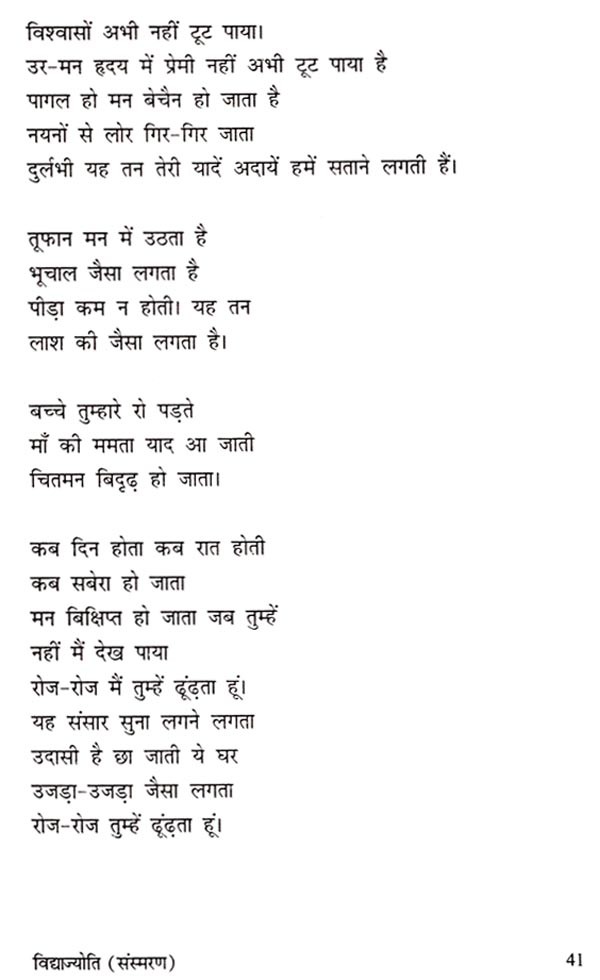 विश्वासों अभी नहीं टूट पाया।
उर-मन हृदय में प्रेमी नहीं अभी टूट पाया है
पागल हो मन बेचैन हो जाता है
नयनों से लोर गिर-गिर जाता
दुर्लभी यह तन तेरी यादें अदायें हमें सताने लगती हैं।

तूफान मन में उठता है
भूचाल जैसा लगता है
पीड़ा कम न होती। यह तन
लाश की जैसा लगता है।

बच्चे तुम्हारे रो पड़ते
माँ की ममता याद आ जाती
चितमन बिदृढ़ हो जाता।

कब दिन होता कब रात होती
कब सबेरा हो जाता
मन बिक्षिप्त हो जाता जब तुम्हें
नहीं मैं देख पाया
रोज-रोज मैं तुम्हें ढूंढ़ता हूं।
यह संसार सुना लगने लगता
उदासी है छा जाती ये घर
उजड़ा-उजड़ा जैसा लगता
रोज-रोज तुम्हें ढूंढ़ता हूं।

विद्याज्योति (संस्मरण) 41